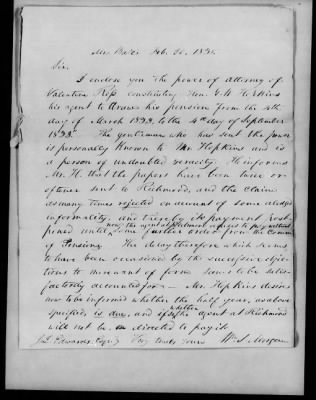 Sir.
I enclose you the power of attorney of
Valentine constituting Hon. G. W. Hopkins
his agent to draw his pension from the 4th
day of March 1833 to the 4th day of September
1833. The gentleman who has sent the power
is personally known to Mr. Hopkins and is
a person of undoubted veracity. He informs
Mr. H. that the papers have been twice or
oftener sent to Richmond, and the claim
as many times rejected on account of some alleged
informality, and thereby its payment post-
poned until now, the agent at Richmond refuses to pay without
some further order from the Comr.
of Pensions. The delay therefore which seems
to have been occasioned by the successive objec-
tions to mere want of form seems to be satis-
factorily accounted for — Mr. Hopkins desires
now to be informed whether the half year, as above
specified, is due, and if so whether the agent at Richmond
will not be directed to pay it.
J. L. Edwards Esqr. Very truly yours Wm. S. Morgan